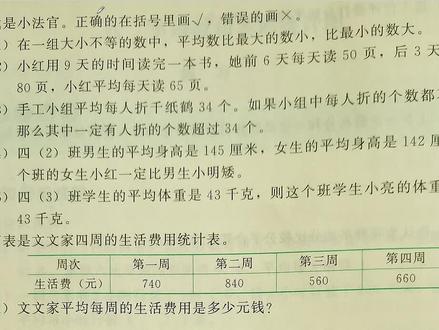 是小法官。正确的在括号里画✓,错误的画×。
)在一组大小不等的数中,平均数比最大的数小,比最小的数大。
2)小红用9天的时间读完一本书,她前6天每天读50页,后3天
80页,小红平均每天读65页。
3)手工小组平均每人折千纸鹤34个。如果小组中每人折的个数都
那么其中一定有人折的个数超过34个。
4)四(2)班男生的平均身高是145厘米,女生的平均身高是142厘
个班的女生小红一定比男生小明矮。
)四(3)班学生的平均体重是43千克,则这个班学生小亮的体重
43千克。
表是文文家四周的生活费用统计表。
周次 第一周 第二周 第三周 第四周
生活费(元) 740 840 560 660
)文文家平均每周的生活费用是多少元钱?